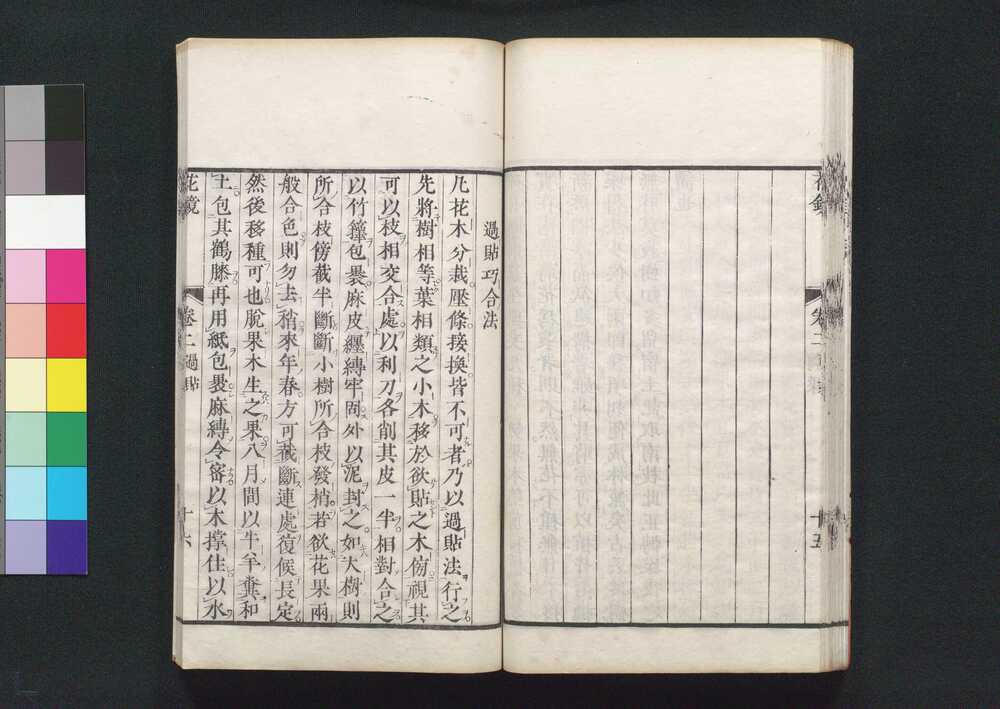 花鏡
卷二
十五
過貼巧合法
凡花木分栽壓條接換皆不可者乃以過貼法行之
先將樹相等葉相類之小木移於欲貼之木傍視其
可以枝相交合處以利刀各削其皮一半相對合之
以竹籜包裹麻皮纏縛牢固外以泥封之如大樹則
所合枝傍截半斷斷小樹所合枝發梢若欲花果兩
般合色則勿去稍來年春方可截斷連處復候長定
然後移種可也脫果木生之果八月間以牛羊糞和
土包其鶴膝再用紙包裹麻縛令密以木撑住以水
花鏡
卷二過貼
十六